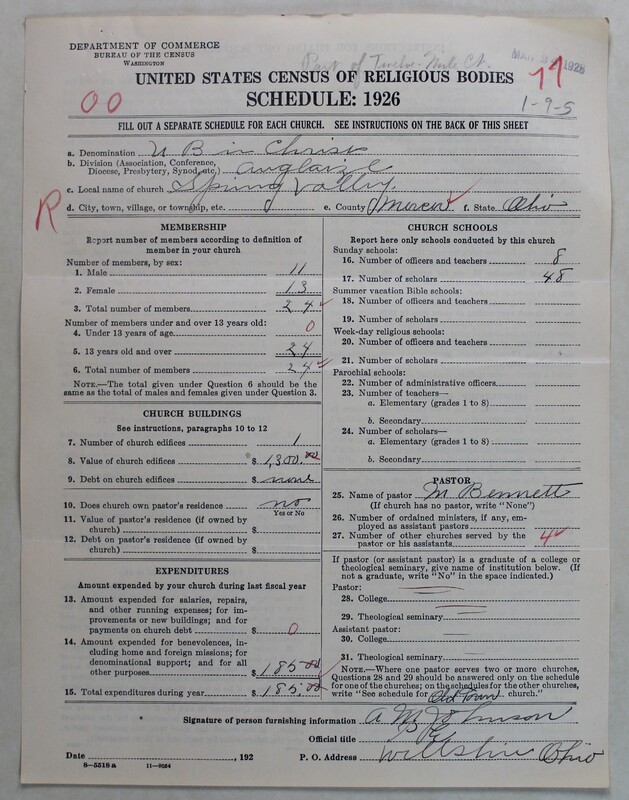 DEPARTMENT OF COMMERCE
BUREAU OF THE CENSUS
WASHINGTON
Part of Twelve-Mile Ct.
1926
UNITED STATES CENSUS OF RELIGIOUS BODIES
SCHEDULE: 1926
00
1-9-5
FILL OUT A SEPARATE SCHEDULE FOR EACH CHURCH. SEE INSTRUCTIONS ON THE BACK OF THIS SHEET
a. Denomination U B in Christ
b. Division (Association, Conference, Diocese, Presbytery, Synod, etc.) Auglaize
c. Local name of church Spring Valley.
R
d. City, town, village, or township, etc. e. County Mercer f. State Ohio
MEMBERSHIP
Report number of members according to definition of member in your church
Number of members, by sex:
1. Male 11
2. Female 13
3. Total number of members 24
Number of members under and over 13 years old:
4. Under 13 years of age 0
5. 13 years old and over 24
6. Total number of members 24
NOTE.—The total given under Question 6 should be the same as the total of males and females given under Question 3.
CHURCH BUILDINGS
See instructions, paragraphs 10 to 12
7. Number of church edifices 1
8. Value of church edifices $ 1,300.00
9. Debt on church edifices $ none
10. Does church own pastor's residence no
Yes or No
11. Value of pastor's residence (if owned by church) $
12. Debt on pastor's residence (if owned by church) $
EXPENDITURES
Amount expended by your church during last fiscal year
13. Amount expended for salaries, repairs, and other running expenses; for improvements or new buildings; and for payments on church debt $ 0
14. Amount expended for benevolences, including home and foreign missions; for denominational support; and for all other purposes $ 185.00
15. Total expenditures during year $ 185.00
CHURCH SCHOOLS
Report here only schools conducted by this church
Sunday schools:
16. Number of officers and teachers 8
17. Number of scholars 48
Summer vacation Bible schools:
18. Number of officers and teachers
19. Number of scholars
Week-day religious schools:
20. Number of officers and teachers
21. Number of scholars
Parochial schools:
22. Number of administrative officers
23. Number of teachers—
a. Elementary (grades 1 to 8)
b. Secondary
24. Number of scholars—
a. Elementary (grades 1 to 8)
b. Secondary
PASTOR
25. Name of pastor M Bennett
(If church has no pastor, write "None")
26. Number of ordained ministers, if any, employed as assistant pastors
27. Number of other churches served by the pastor or his assistants 4
If pastor (or assistant pastor) is a graduate of a college or theological seminary, give name of institution below. (If not a graduate, write "No" in the space indicated.)
Pastor:
28. College
29. Theological seminary
Assistant pastor:
30. College
31. Theological seminary
NOTE.—Where one pastor serves two or more churches, Questions 28 and 29 should be answered only on the schedule for one of the churches; on the schedules for the other churches, write "See schedule for Old Town church."
Signature of person furnishing information A M Johnson
Official title
Date , 192
P. O. Address Willshire Ohio
8—5518a 11—9064